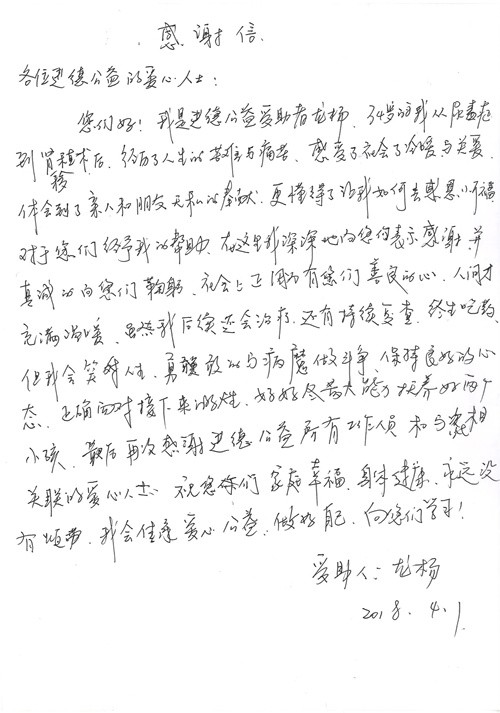 感谢信.
各位进德公益的爱心人士:
您们好!我是进德公益受助者龙杨,34岁的我从尿毒症
到肾移植术后,经历了人生的苦难与痛苦,感受了社会了冷暖与关爱,
体会到了亲人和朋友无私的奉献,更懂得了让我如何去感恩,惜福
对于您们给予我的帮助,在这里我深深地向您们表示感谢并
真诚的向您们鞠躬,社会上正因为有您们善良的心,人间才
充满温暖,虽然我后续还会治疗,还有持续复查,终生吃药,
但我会笑对人生,勇敢的与病魔做斗争,保持良好的心
态,正确面对接下来的,好好尽最大能力扶养好两个
小孩,最后再次感谢进德公益所有工作人员和与相
关联的爱心人士 祝您们家庭幸福,身体健康,永远没
有烦,我会传爱心公益,做好自己,向您们学习!
受助人:龙杨
2018.4.1